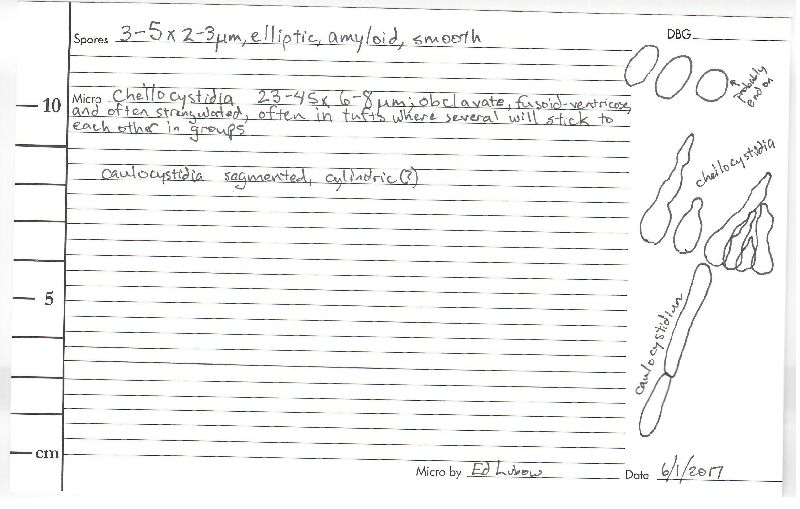 Spores 3-5 x 2-3µm, elliptic, amyloid, smooth
DBG
probably
end on
10
Micro Cheilocystidia 23-45 x 6-8µm; obclavate, fusoid-ventricose,
and often strangulated, often in tufts where several will stick to
each other in groups
cheilocystidia
caulocystidia segmented, cylindric(?)
5
caulocystidium
cm
Micro by Ed Lubow
Date 6/1/2017